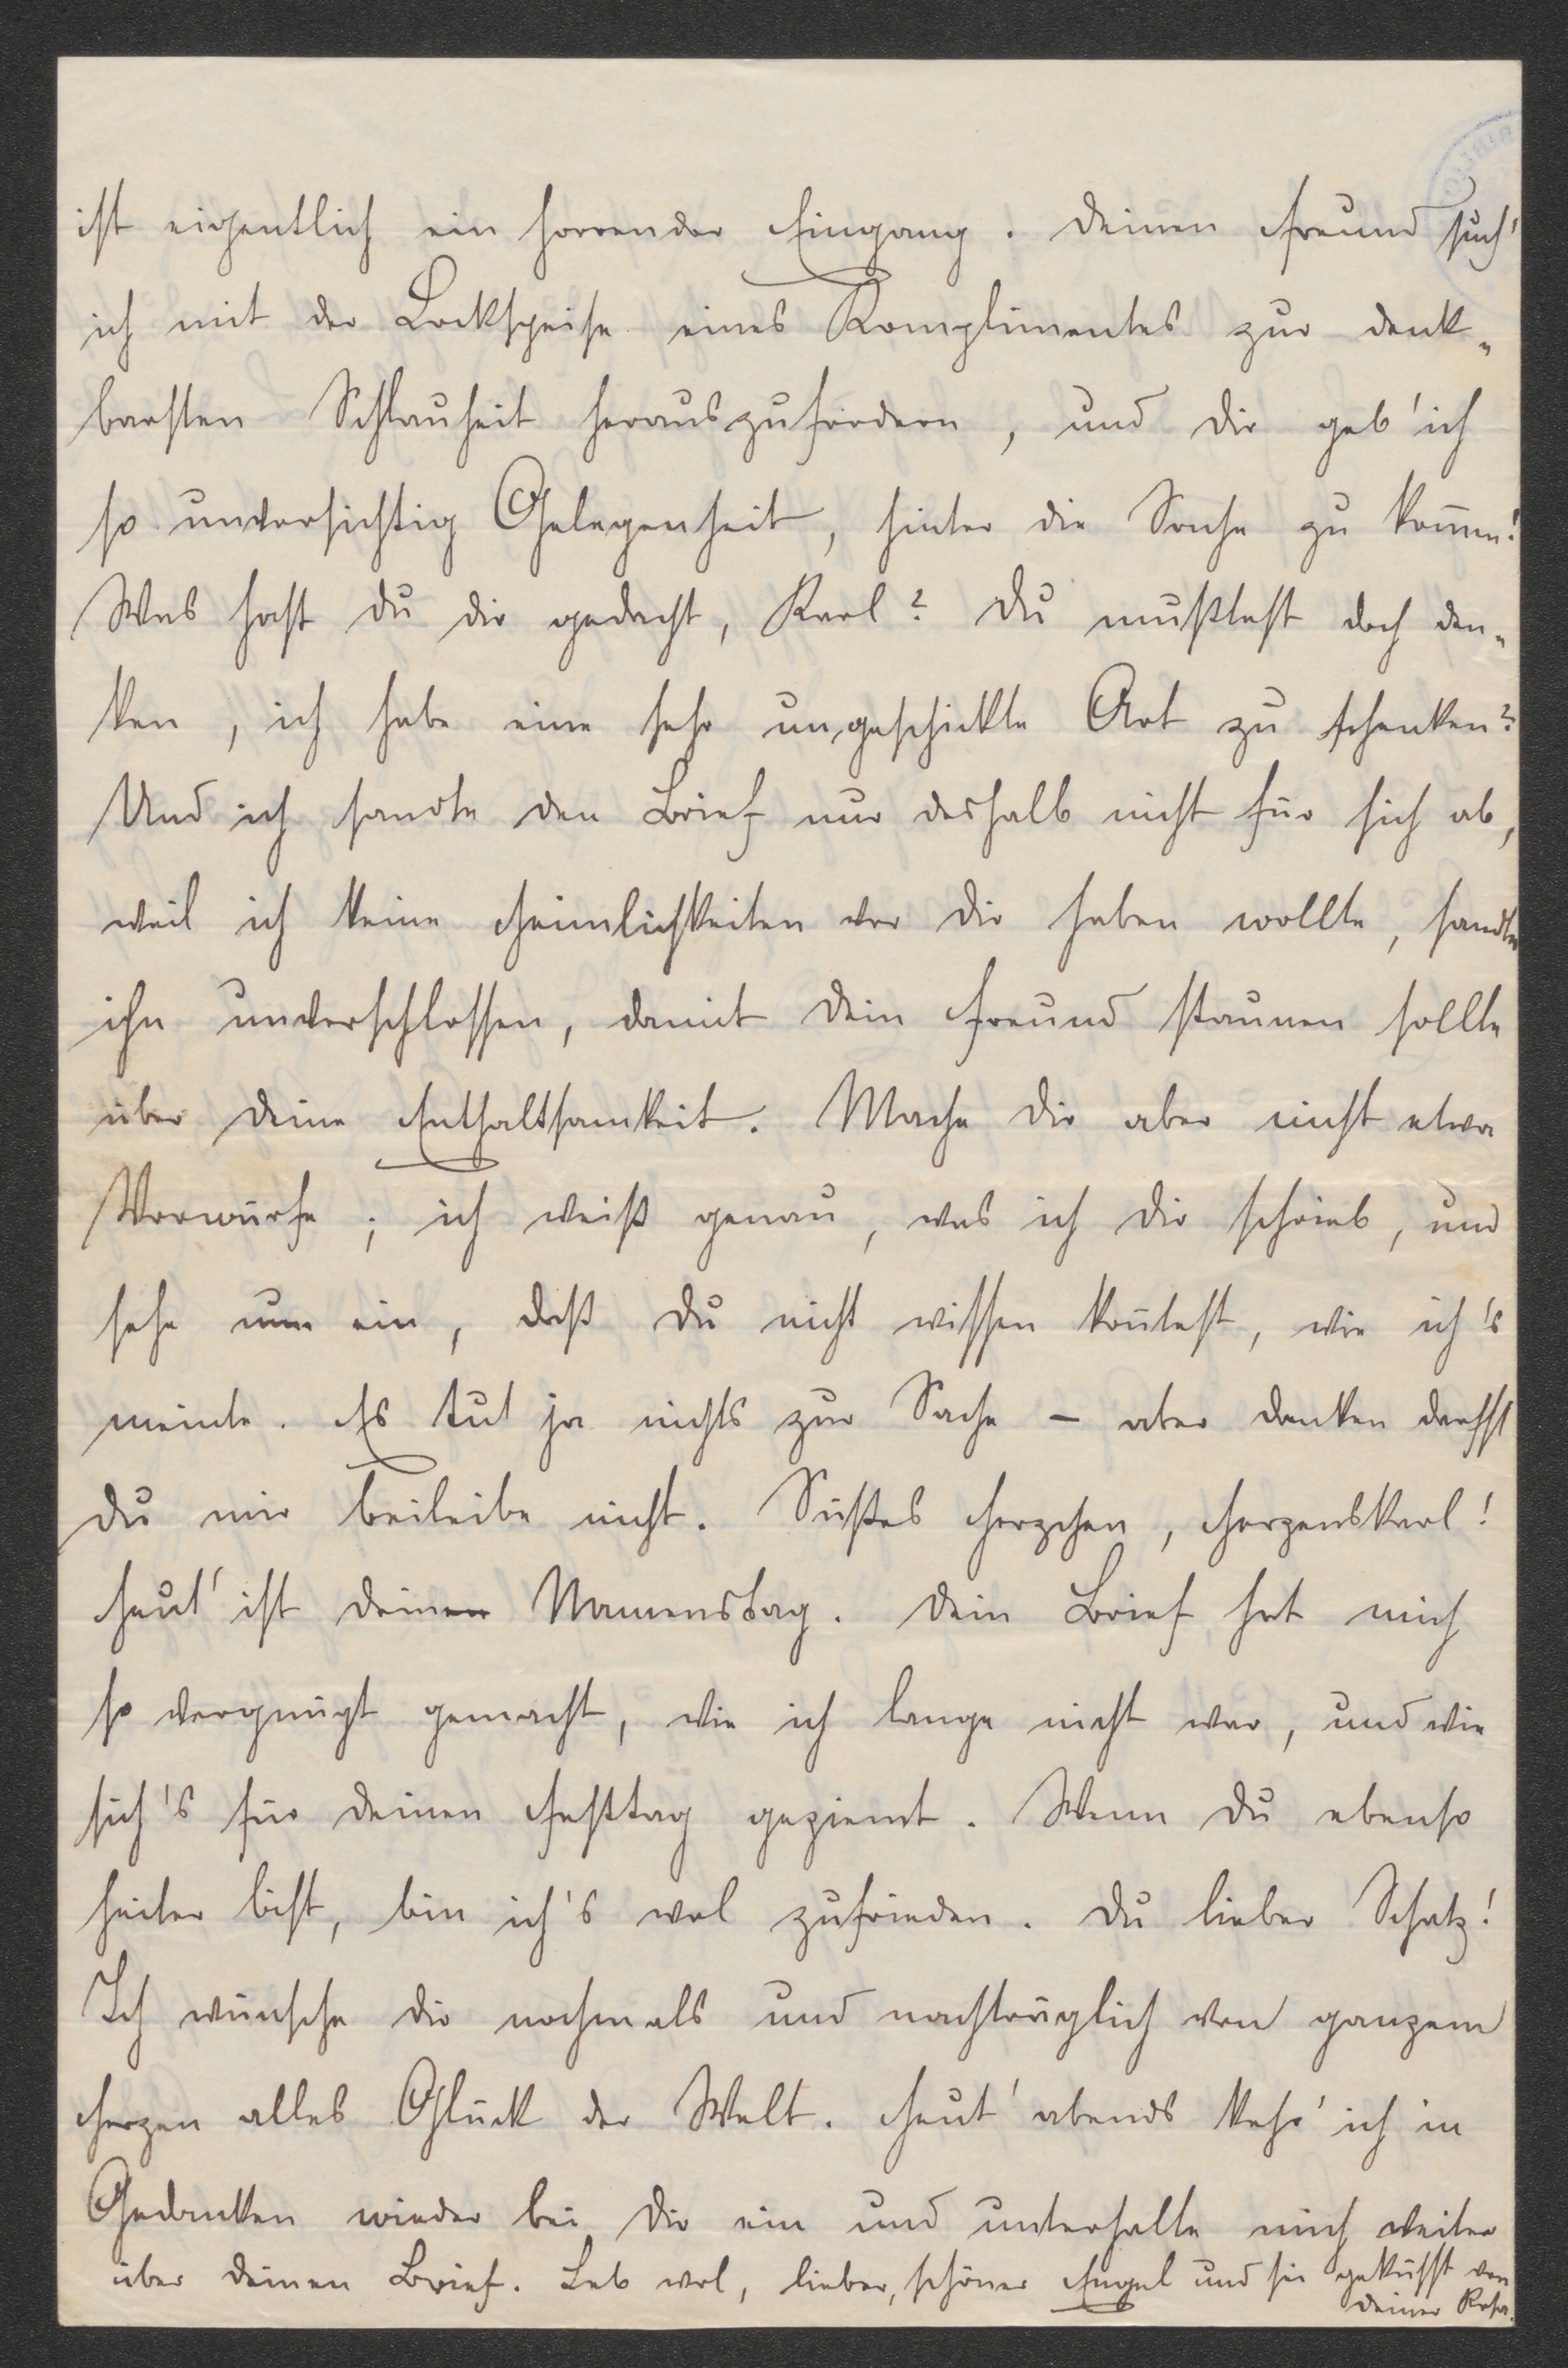 ist eigentlich ein horrender Eingang. Deinen Freund such'
ich mit der Lockspeise eines Komplimentes zur denk-
barsten Schlauheit herauszufordern, und dir geb' ich
so unvorsichtig Gelegenheit, hinter die Sache zu kom̅en!
Was hast du dir gedacht, Karl? Du mußtest doch den-
ken, ich habe eine sehr ungeschickte Art zu schenken?
Und ich sandte den Brief nur deshalb nicht für sich ab,
weil ich keine Heimlichkeiten vor dir haben wollte, sandte
ihn unverschlossen, damit dein Freund staunen sollte
über deine Enthaltsamkeit. Mache dir aber nicht etwa
Vorwürfe; ich weiß genau, was ich dir schrieb, und
sehe nun ein, daß du nicht wissen kon̅test, wie ich's
meinte. Es tut ja nichts zur Sache – aber danken darfst
du mir beileibe nicht. Süßes Herzchen, Herzenskarl!
Heut' ist dein Namenstag. Dein Brief hat mich
so vergnügt gemacht, wie ich lange nicht war, und wie
sich's für deinen Festtag geziemt. Wenn du ebenso
heiter bist, bin ich's wol zufrieden. Du lieber Schatz!
Ich wünsche dir nochmals und nachträglich von ganzem
Herzen alles Glück der Welt. Heut' abends kehr' ich in
Gedanken wieder bei dir ein und unterhalte mich weiter
über deinen Brief. Leb wol, lieber, schöner Engel und sei geküsst von
deiner Rosa.